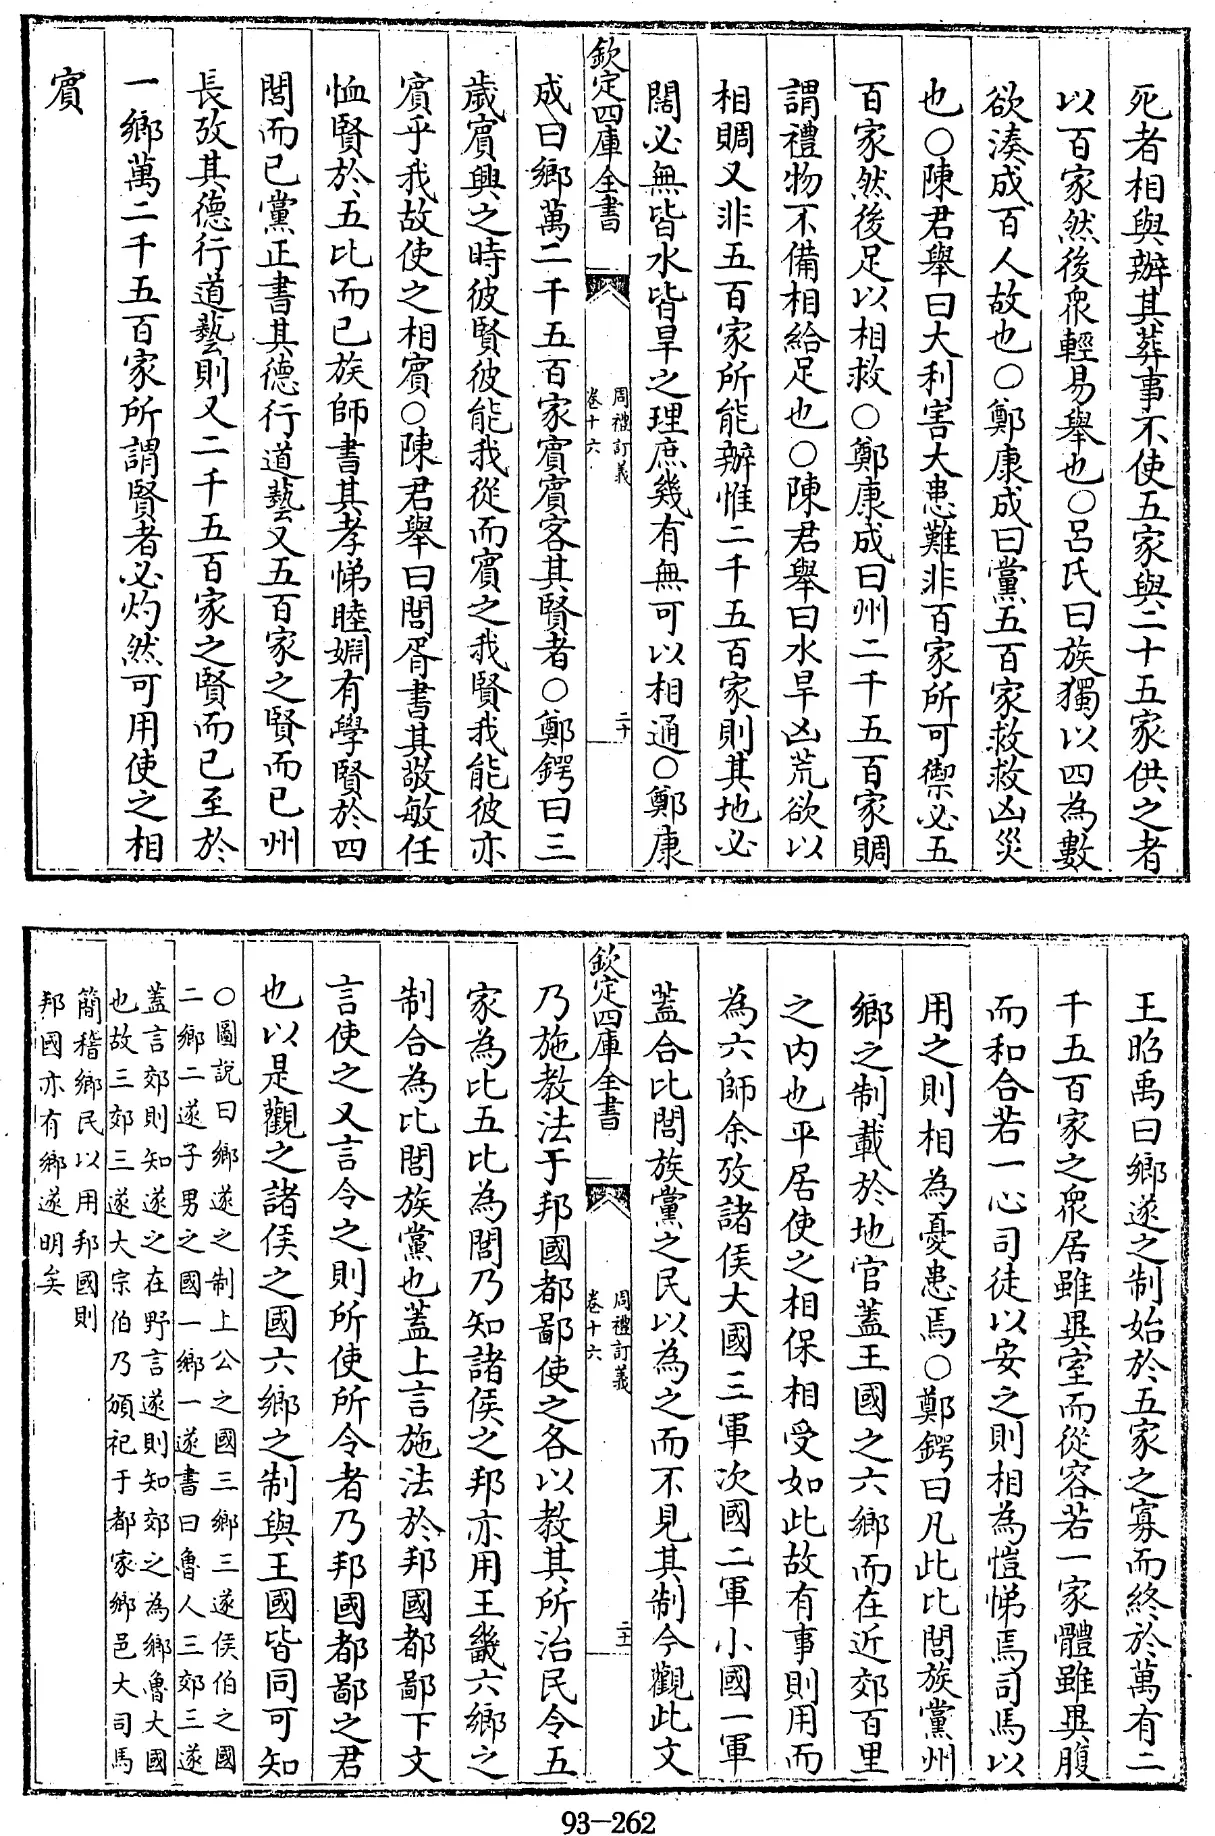 死者相與辦其葬事不使五家與二十五家供之者
以百家然後衆輕易舉也○呂氏曰族獨以四為數
欲湊成百人故也○鄭康成曰黨五百家救救凶災
也○陳君舉曰大利害大患難非百家所可禦必五
百家然後足以相救○鄭康成曰州二千五百家賙
謂禮物不備相給足也○陳君舉曰水旱凶荒欲以
相賙又非五百家所能辦惟二千五百家則其地必
闊必無皆水皆旱之理庶幾有無可以相通○鄭康
欽定四庫全書
周禮訂義
卷十六
二十
成曰鄉萬二千五百家賓賓客其賢者○鄭鍔曰三
歲賓興之時彼賢彼能我從而賓之我賢我能彼亦
賓乎我故使之相賓○陳君舉曰閭胥書其敬敏任
恤賢於五比而已族師書其孝悌睦婣有學賢於四
閭而已黨正書其德行道藝又五百家之賢而已州
長攷其德行道藝則又二千五百家之賢而已至於
一鄉萬二千五百家所謂賢者必灼然可用使之相
賓
王昭禹曰鄉遂之制始於五家之寡而終於萬有二
千五百家之衆居雖異室而從容若一家體雖異腹
而和合若一心司徒以安之則相為愷悌焉司馬以
用之則相為憂患焉○鄭鍔曰凡此比閭族黨州
鄉之制載於地官蓋王國之六鄉而在近郊百里
之內也平居使之相保相受如此故有事則用而
為六師余攷諸侯大國三軍次國二軍小國一軍
蓋合比閭族黨之民以為之而不見其制今觀此文
欽定四庫全書
周禮訂義
卷十六
二十一
乃施教法于邦國都鄙使之各以教其所治民令五
家為比五比為閭乃知諸侯之邦亦用王畿六鄉之
制合為比閭族黨也蓋上言施法於邦國都鄙下文
言使之又言令之則所使所令者乃邦國都鄙之君
也以是觀之諸侯之國六鄉之制與王國皆同可知
○圖說曰鄉遂之制上公之國三鄉三遂侯伯之國
二鄉二遂子男之國一鄉一遂書曰魯人三郊三遂
蓋言郊則知遂之在野言遂則知郊之為鄉魯大國
也故三郊三遂大宗伯乃頒祀于都家鄉邑大司馬
簡稽鄉民以用邦國則
邦國亦有鄉遂明矣
93-262